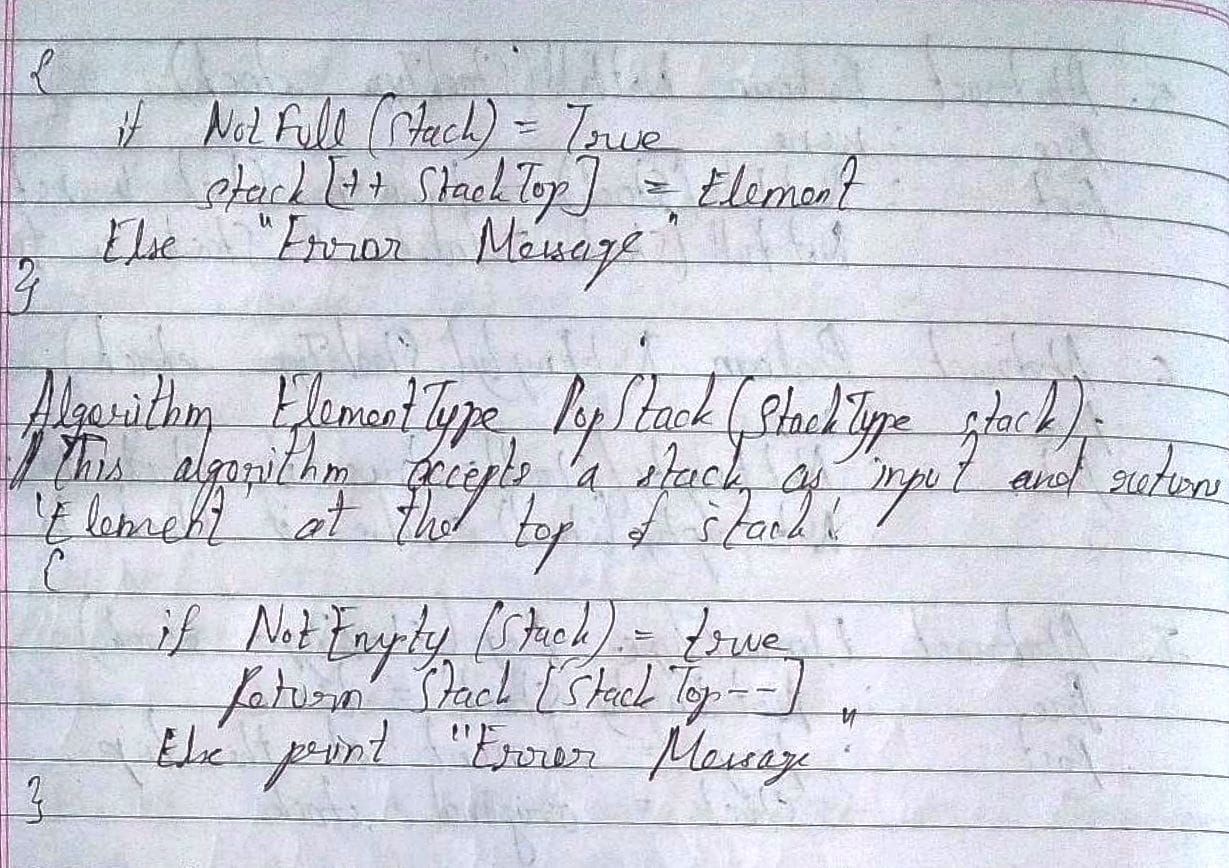 {
if NotFull (Stack) = True
stack [++ StackTop] = Element
Else "Error Message"
}
Algorithm ElementType PopStack (StackType stack).
// This algorithm accepts a stack as input and return
'Element at the top of stack.'
{
if NotEmpty (Stack) = true
Return Stack [Stack Top--]
Else print "Error Message"
}